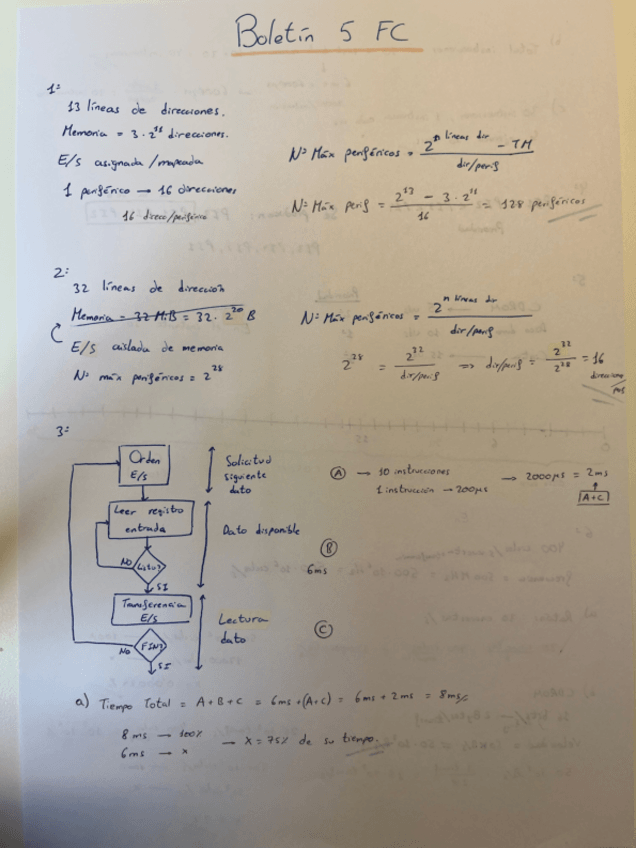 Boletín 5 FC
1º
13 líneas de direcciones.
Memoria = 3·2^11 direcciones.
E/S asignada/mapeada
1 periférico → 16 direcciones
16 direcc/periférico
Nº Máx periféricos = (2^n líneas dir − TM) / dir/perif
Nº Máx perif = (2^13 − 3·2^11) / 16 = 128 periféricos
2º
32 líneas de dirección
Memoria = 32 MB = 32·2^20 B
E/S aislada de memoria
Nº máx periféricos = 2^28
Nº Máx periféricos = 2^n líneas dir / dir/perif
2^28 = 2^32 / dir/perif ⟹ dir/perif = 2^32 / 2^28 = 16 direcciones/
3º
Orden
E/S
Solicitud
siguiente
dato
A → 10 instrucciones → 2000µs = 2ms
1 instrucción → 200µs
A+C
Leer registro
entrada
Dato disponible
B
6ms
NO
Listo?
SI
Transferencia
E/S
Lectura
dato
C
NO
FIN?
SI
a) Tiempo Total = A+B+C = 6ms+(A+C) = 6ms+2ms = 8ms
8 ms → 100%
6ms → x
→ X = 75% de su tiempo.